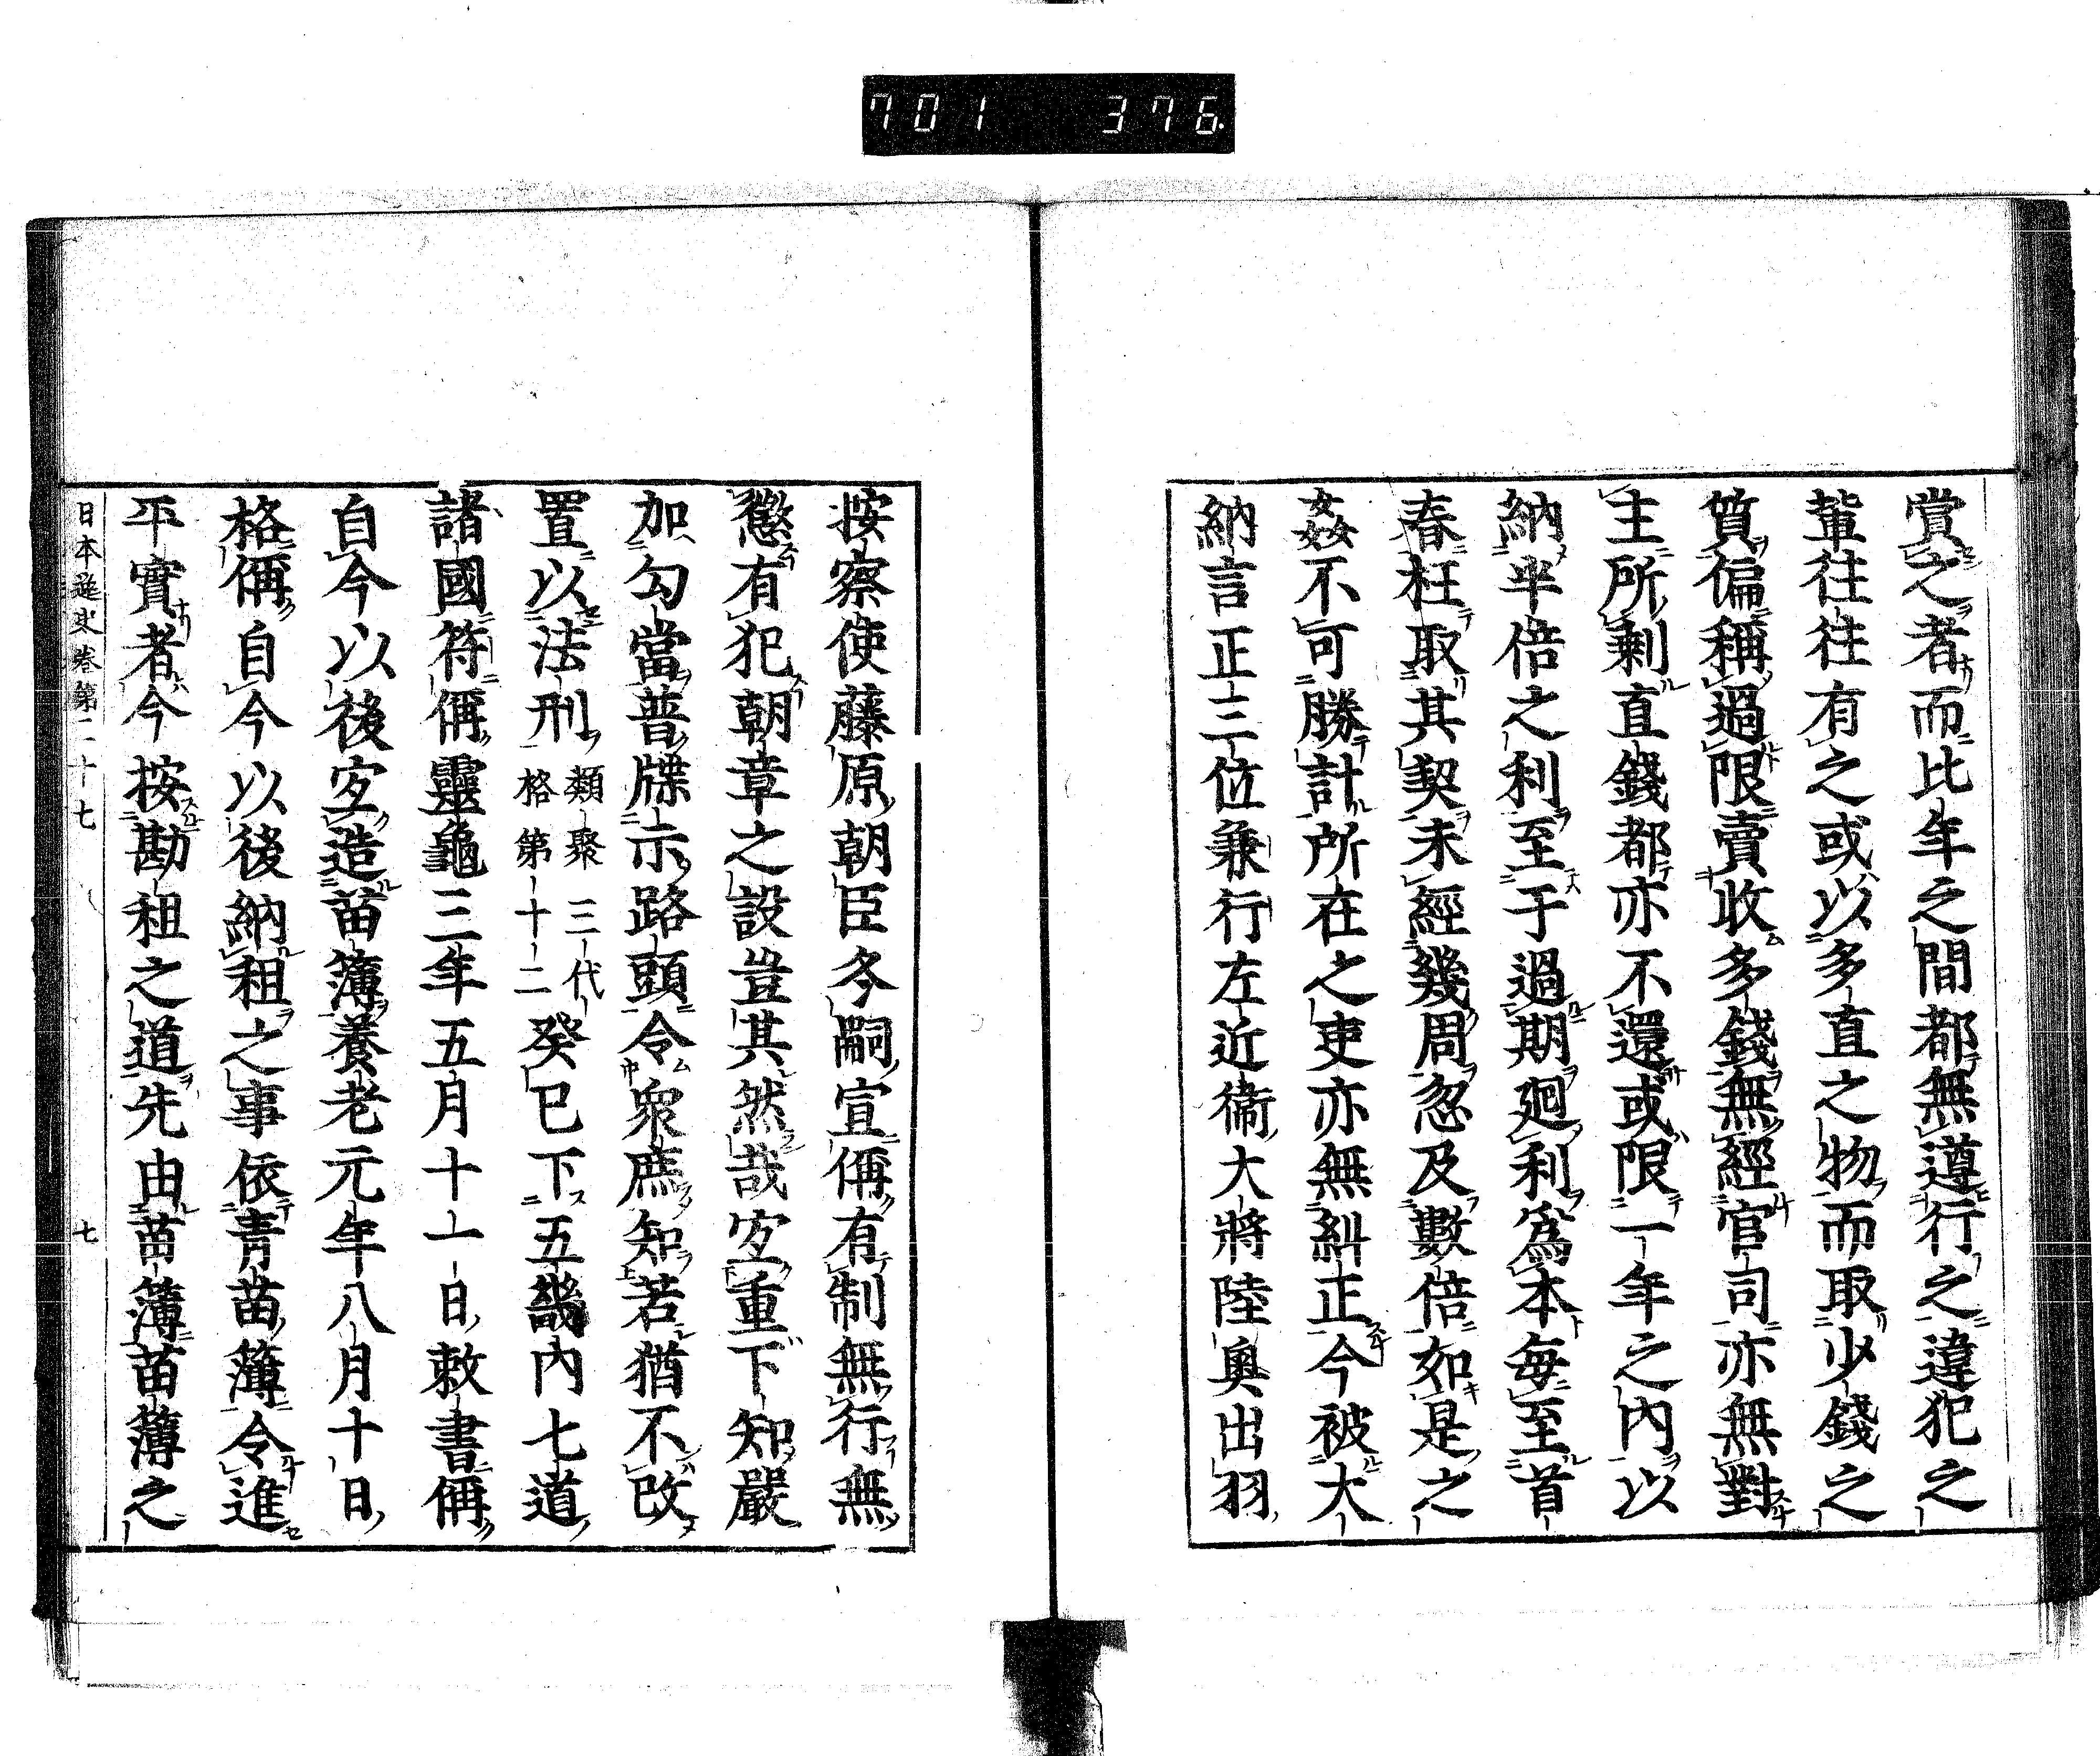 701 376.
賞之者而比年之間都無遵行之違犯之
輩往往有之或以多直之物而取少錢之
質偏稱過限賣收多錢無經官司亦無對
主所剩直錢都亦不還或限一年之内以
納半倍之利至于過期廻利爲本毎至首
春枉取其契未經幾周忽及數倍如是之
姦不可勝計所在之吏亦無糾正今被大
納言正三位兼行左近衞大將陸奥出羽
按察使藤原朝臣冬嗣宣偁有制無行無
懲有犯朝章之設豈其然哉宜重下知嚴
加勾當普牒示路頭令衆庶知若猶不改
置以法刑類聚三代格第十二癸巳下五畿内七道
諸國符偁靈龜三年五月十一日敕書偁
自今以後宜造苗簿養老元年八月十日
格偁自今以後納租之事依青苗簿令進
平實者今按勘租之道先由苗簿苗簿之
日本逸史卷第二十七 七